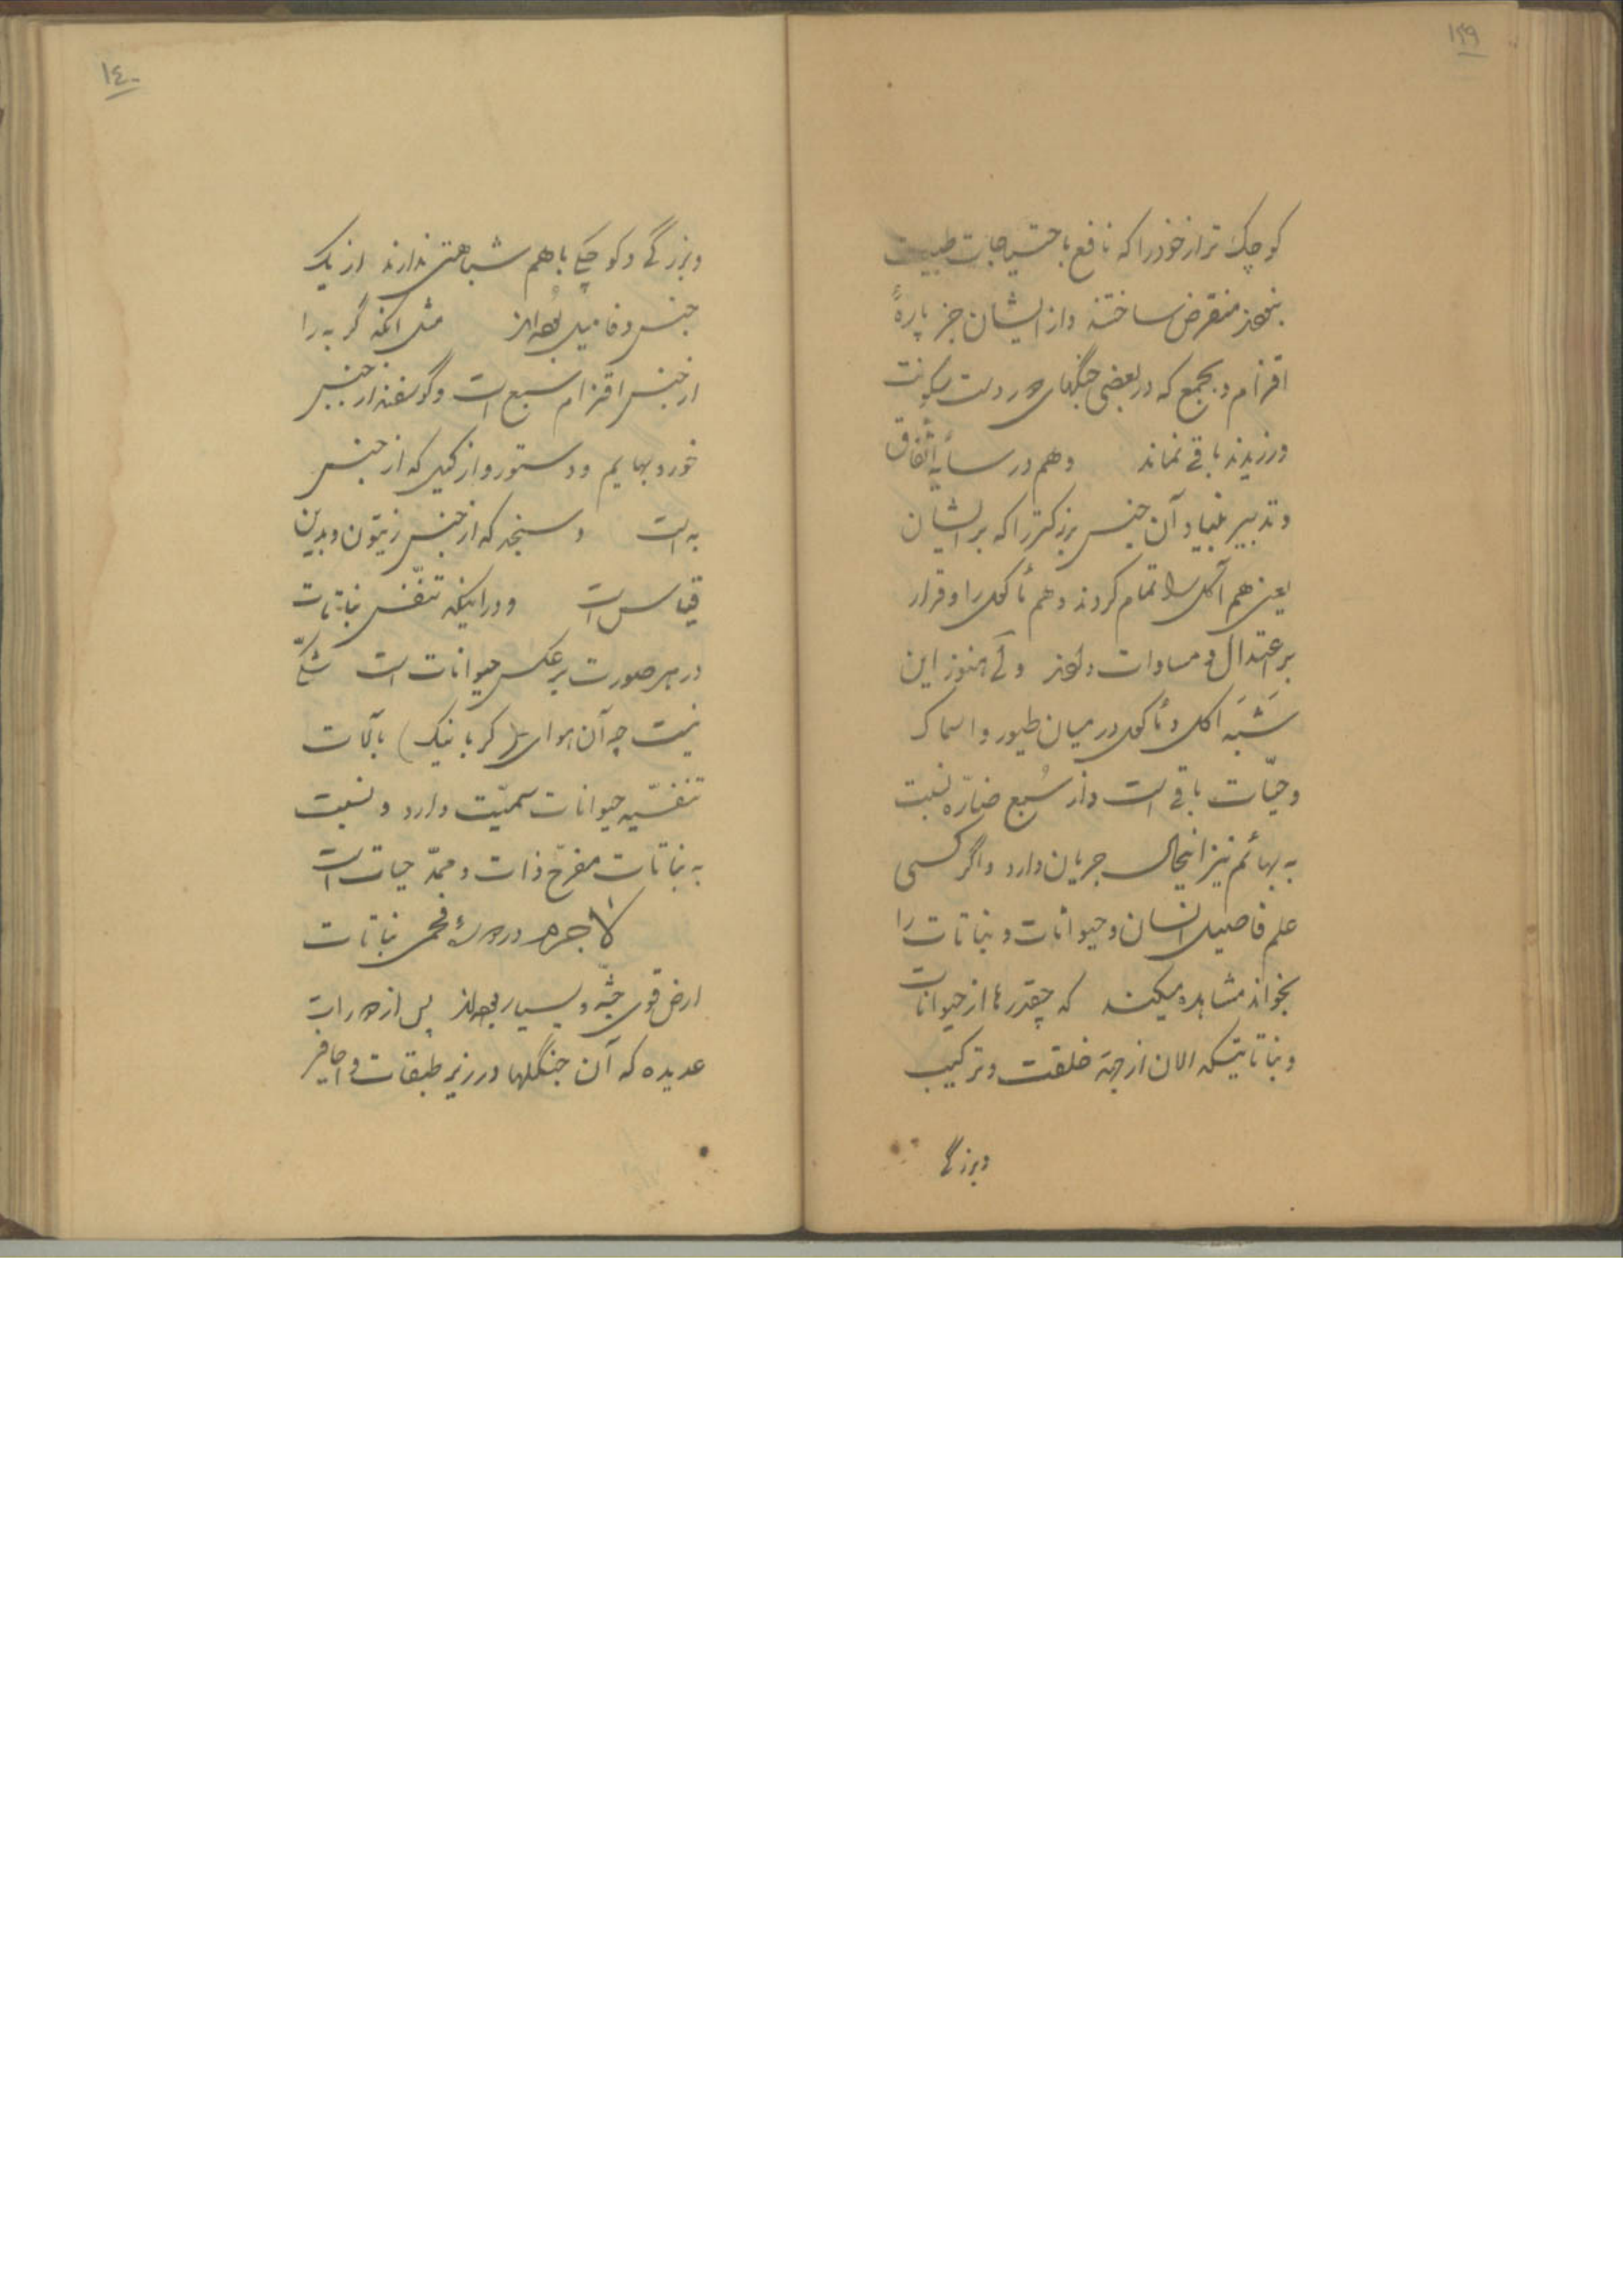 ۱۳۹
کوچک تر از خود را که نافع باحتیاجات طبیعت
نبودند منقرض ساختند و از ایشان جز پارهٔ
اقزام و بجمع که در بعضی جنگهای دور دست سکونت
ورزیدند باقی نماند وهم در سایهٔ اتّفاق
و تدبیر بنیاد آن جنس بزرکتر را که بر ایشان
یعنی هم آکل را تمام کردند و هم مأکول را و قرار
بر اعتدال و مساوات دادند ولی هنوز این
شَبَه اکل و مأکول در میان طیور و اسماک
و حیّات باقی است و از سُبع ضارّه نسبت
به بهائم نیز اینحال جریان دارد و اگر کسی
علم فاصیل انسان و حیوانات و نباتات را
بخواند مشاهده میکند که چقدرها از حیوانات
و نباتاتیکه الان از جهة خلقت و ترکیب
و بزرگی
۱٤۰
و بزرگی و کوچکی باهم شباهتی ندارند از یک
جنس و فامیل بوده‌اند مثل انکه گربه را
از جنس اقزام سبع است و گوسفند از جنس
خورد بهایم و دستور و ازکیل که از جنس
به است و سنجد که از جنس زیتون و بدین
قیاس است و در اینکه تنفّس نباتات
در هر صورت برعکس حیوانات است شکّی
نیست چه آن هوای (کربانیک) بآلات
تنفسّیه حیوانات سمیّت دارد و نسبت
به نباتات مفرّح ذات و ممدّ حیات است
لاجرم در دورهٔ فحمی نباتات
ارض قوی جثّه و بسیار بوده‌اند پس از دورات
عدیده که آن جنگلها در زیر طبقات و احافیر